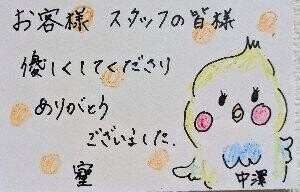 お客様 スタッフの皆様
優しくしてくださり
ありがとう
ございました.
中澤